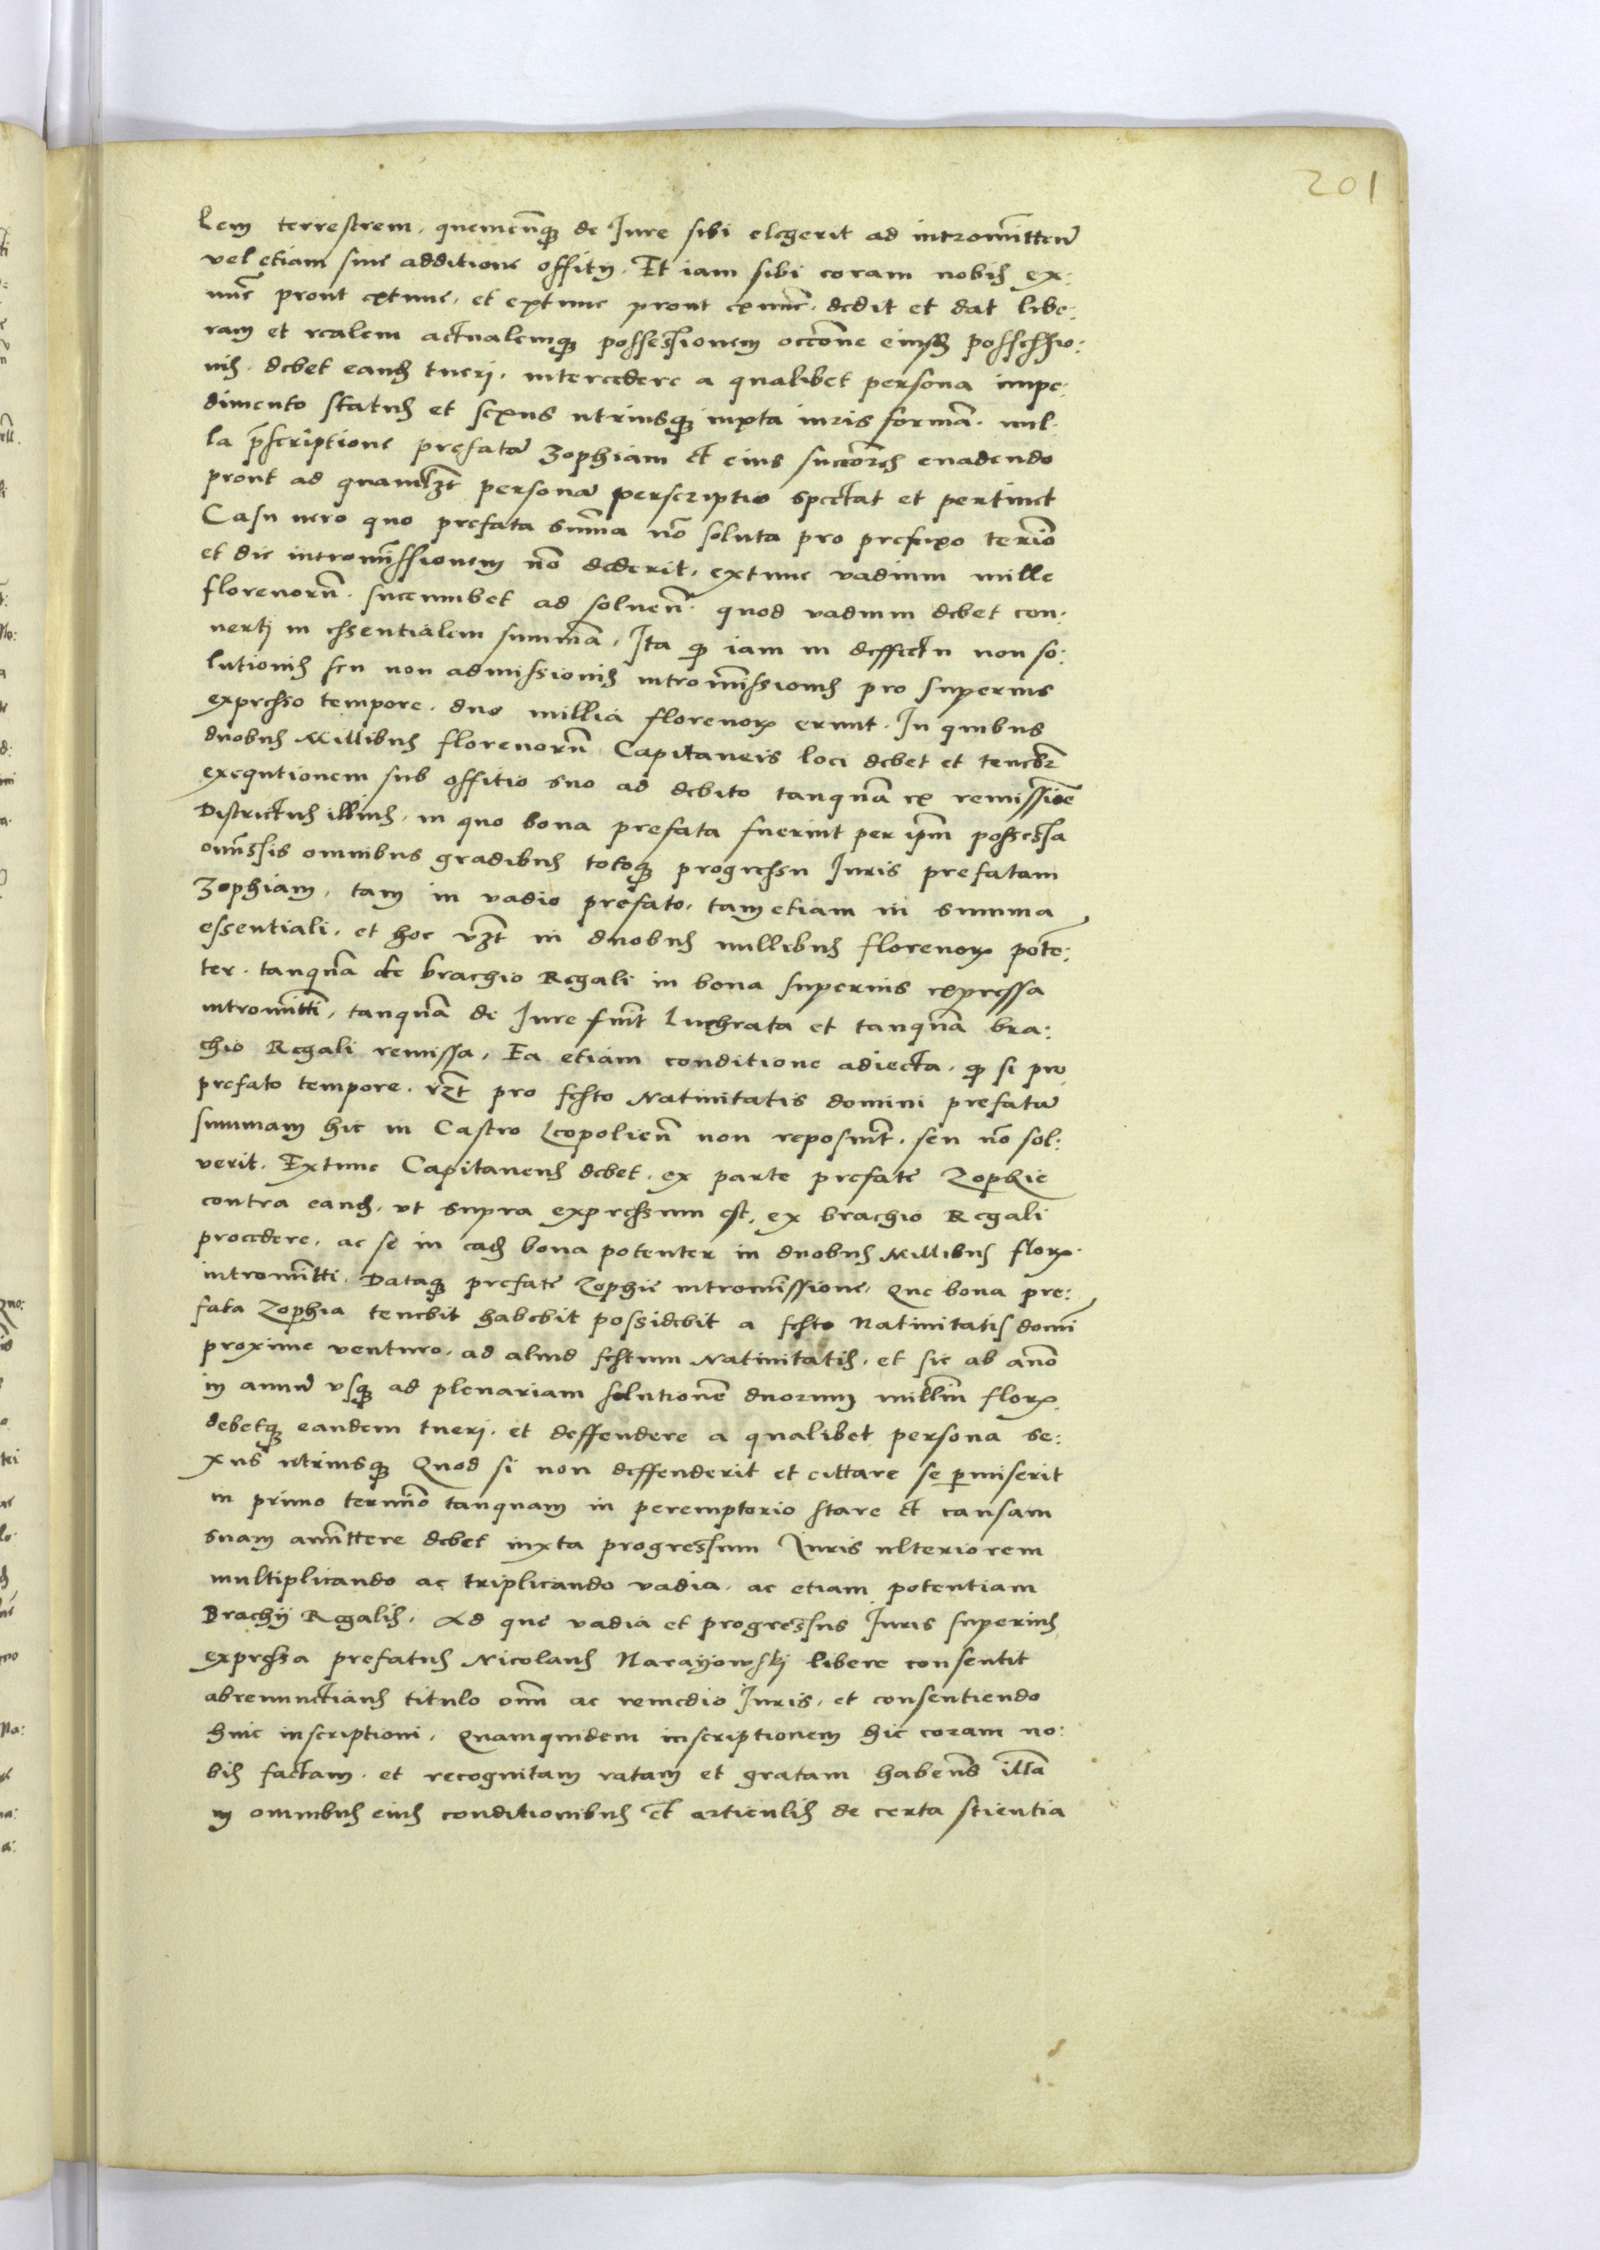 201
lem terrestrem, quemcunqʒ de Jure sibi elegerit ad intromitten̄
vel etiam sine additione offitij. Et iam sibi coram nobis ex:
nūc prout extunc, et extunc prout ex nūc, dedit et dat libe:
ram et realem actualemqʒ possessionem occōne eiusdē possessio:
nis. debet eandē tueri, intercedere a qualibet persona impe:
dimento status et sexus utriusqʒ iuxta iuris formā. nul:
la p̄scriptione prefatā Zophiam et eius succōres euadendo
prout ad quamlʒt personā perscriptio spectat et pertinet
Casu uero quo prefata sum̄a nō soluta pro prefixo terīo
et die intromissionem nō dederit, extunc vadium mille
florenorū succumbet ad soluen̄. quod vadium debet con:
uerti in essentialem summā, Ita qȝ iam in deffectu non so:
lutionis seu non admissionis intromissionis pro superius
expresso tempore. duo millia florenoꝝ erunt. In quibus
duobus Millibus florenorū Capitaneis loci debet et tenebr̄
exequtionem sub offitio suo ad debito tanquā ex remissiōe
Districtus illius, in quo bona prefata fuerint per ip̄m possessa
omissis omnibus gradibus totoqʒ progressu Juris prefatam
Zophiam, tam in vadio prefato, tam etiam in summa
essentiali, et hoc vʒt in duobus millibus florenoꝝ poten:
ter. tanquā de brachio Regali in bona superius expressa
intromitti, tanquā de Jure fuit luchrata et tanquā bra:
chio Regali remissa, Ea etiam conditione adiecta, qȝ si pro
prefato tempore. vʒt pro festo Natiuitatis domini prefatā
summam hic in Castro Leopolien̄ non reposuit, seu nō sol:
verit. Extunc Capitaneus debet, ex parte prefate Zophie
contra eandē, ut supra expressum est, ex brachio Regali
procedere, ac se in eadē bona potenter in duobus Millibus floꝝ
intromitti. Dataqʒ prefate Zophie intromissione, Que bona pre:
fata Zophia tenebit habebit possidebit a festo Natiuitatis domī
proxime venturo, ad aliud festum Natiuitatis, et sic ab anō
in annū usqʒ ad plenariam solutionē duorum milliū floꝝ.
debetqʒ eandem tueri, et deffendere a qualibet persona se:
xus utriusqʒ Quod si non deffenderit et cittare se permiserit
in primo termīo tanquam in peremptorio stare et causam
suam amittere debet iuxta progressum Juris ulteriorem
multiplicando ac triplicando vadia, ac etiam potentiam
Brachij Regalis, Ad que vadia et progressus Juris superius
expressa prefatus Nicolaus Narayowskj libere consentit
abrenunctians titulo om̄i ac remedio Juris, et consentiendo
huic inscriptioni, Quamquidem inscriptionem hic coram no:
bis factam, et recognitam ratam et gratam habend̄ illā
in omnibus eius conditionibus et articulis de certa scientia